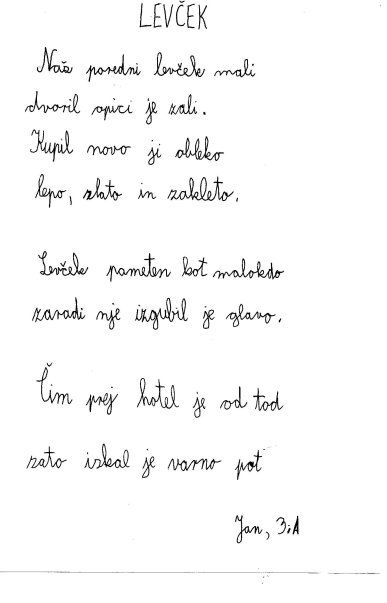 LEVČEK
Naš poredni levček mali
dvoril opici je zali.
Kupil novo ji obleko
lepo, zlato in zakleto.
Levček pameten kot malokdo
zaradi nje izgubil je glavo.
Čim prej hotel je od tod
zato iskal je varno pot
Jan, 3.A